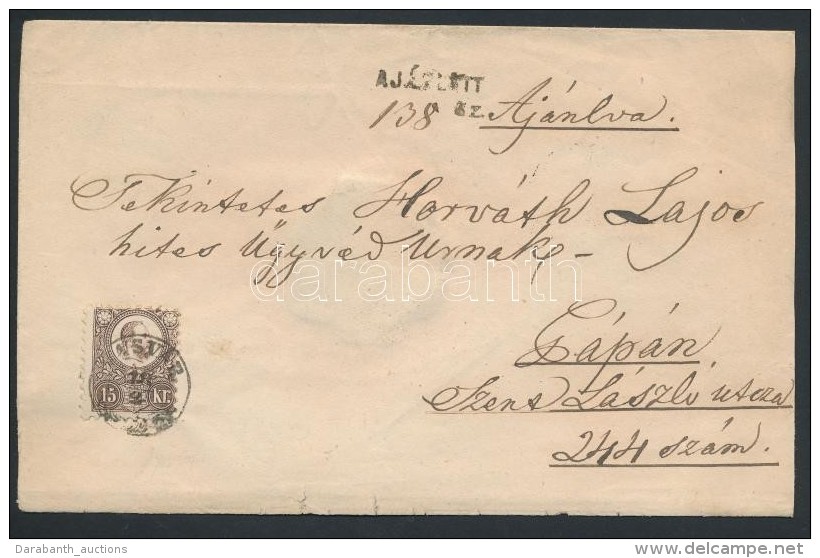 AJÁNLOTT
138 sz. Ajánlva.
Tekintetes Horváth Lajos
hites Ügyvéd Urnak -
darabanth
Pápán
Szent László utcza
244 szám.
15 Kr.
Darabanth_auctions
www.delcampe.net